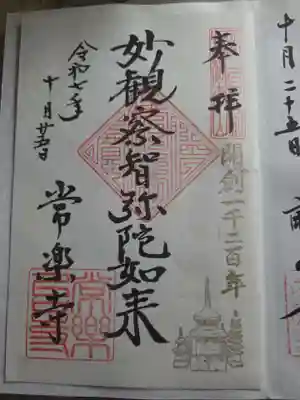 奉拝
開創一千二百年
妙觀察智弥陀如来
令和七年
十月廿五日
常楽寺
十月二十五日